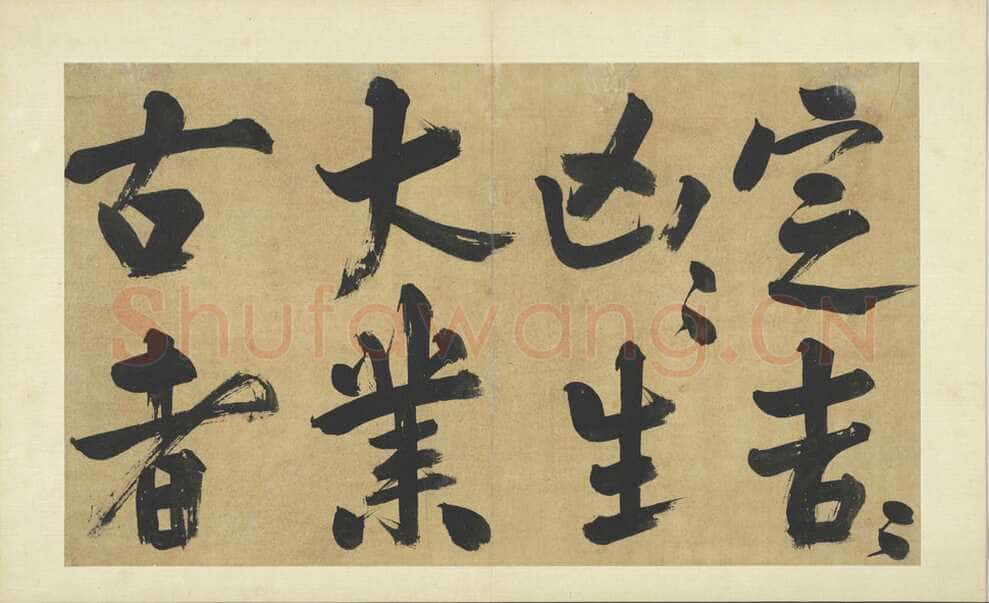 定吉〻
凶〻生
大業
古者
Shufawang.CN